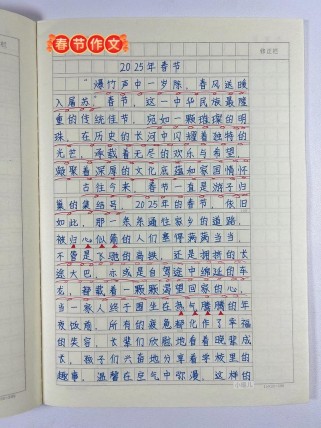 春节作文
修正栏
2025年春节
“爆竹声中一岁除，春风送暖
入屠苏”春节，这一中华民族最隆
重的传统佳节，宛如一颗璀璨的明
珠，在历史的长河中闪耀着独特的
光芒，承载着无尽的欢乐与希望，
凝聚着深厚的文化底蕴和家国情怀
古往今来，春节一直是游子归
巢的集结号，2025年的春节，依旧
如此，那一条条通往家乡的道路，
被归心似箭的人们塞得满满当当，
不管是飞驰的高铁，还是拥挤的长
途大巴，亦或是自驾途中绵延的车
龙，都载着一颗颗渴望回家的心，
当一家人终于围坐在热气腾腾的年
夜饭旁，所有的疲惫都化作了幸福
的笑容，长辈们欣慰地看着晚辈成
长，孩子们兴奋地分享着学校里的
趣事，温馨在空气中弥漫，这样的